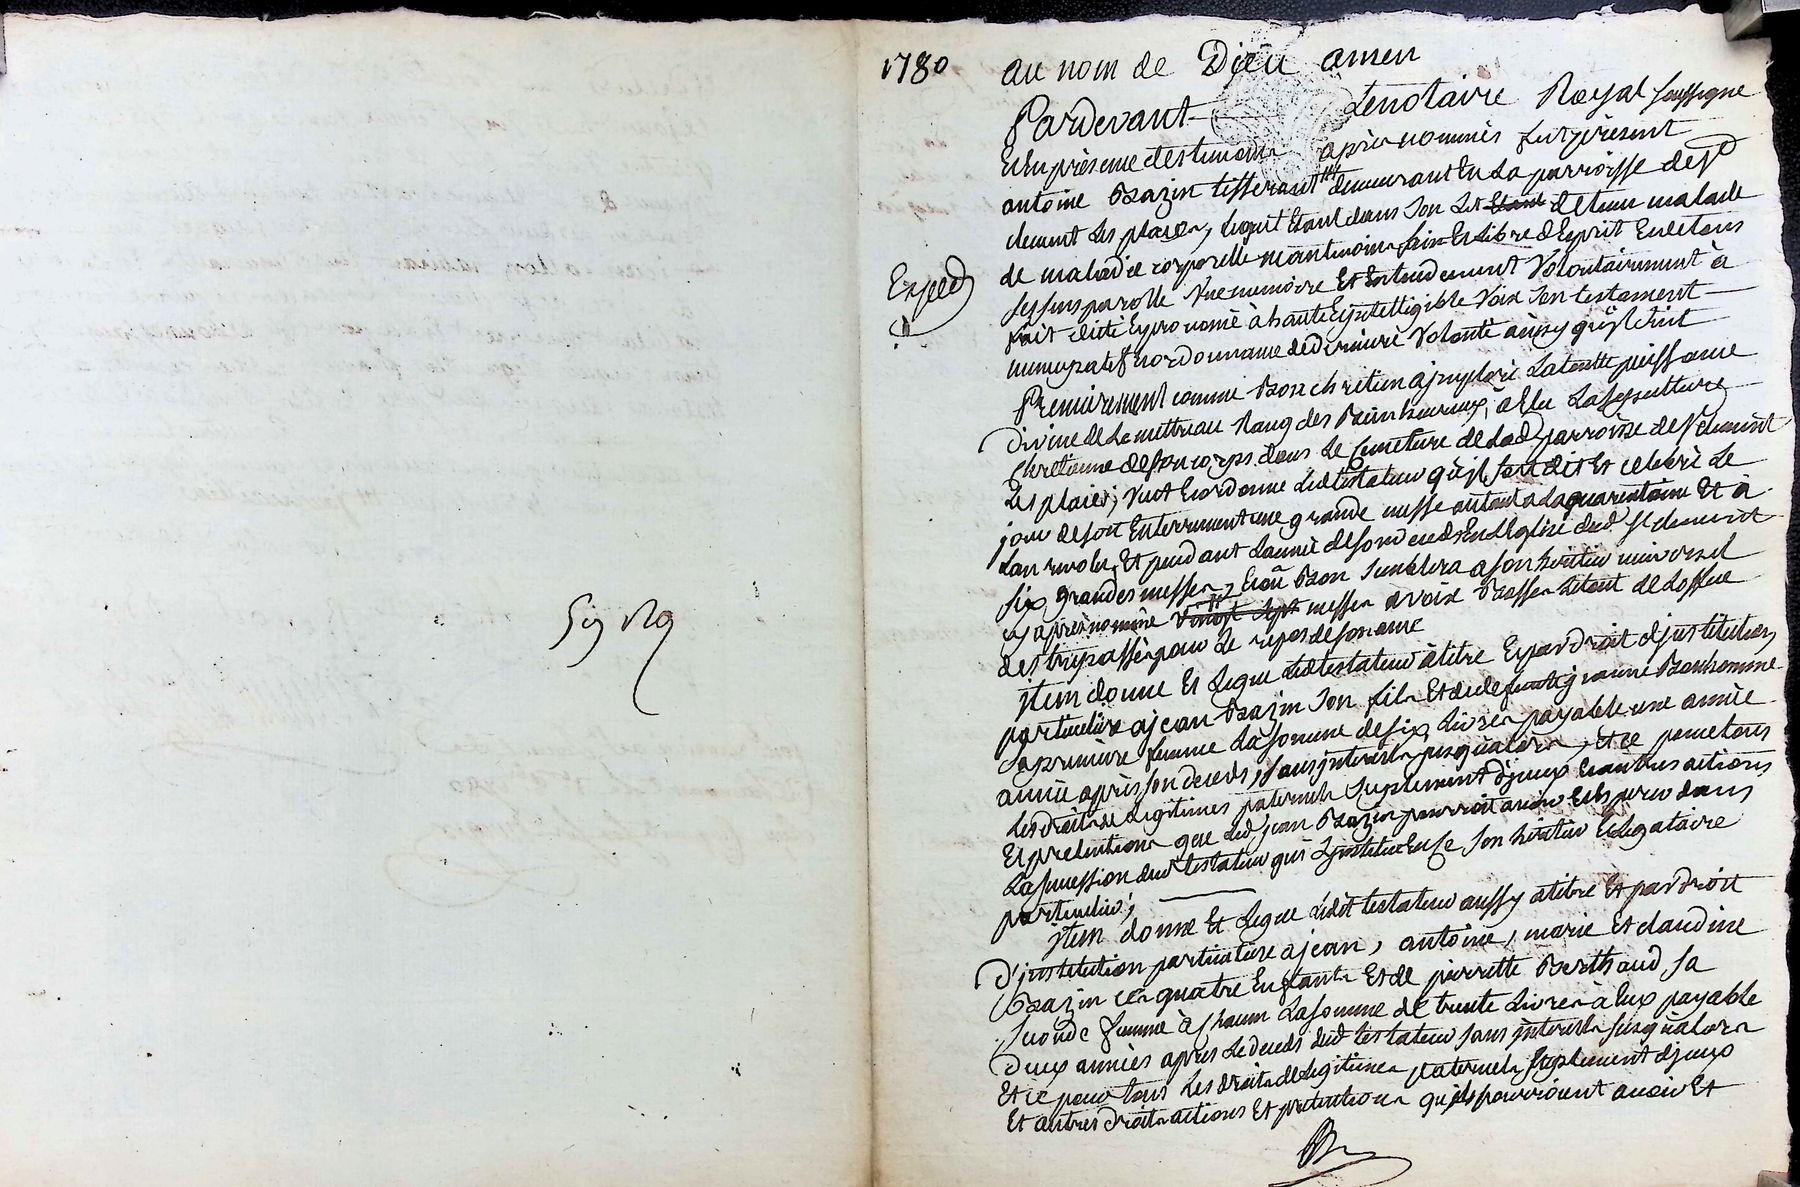 Sig Rg
1780
au nom de Dieu amen
Pardevant Lenotaire Royal soussigne
Et En presence des temoins apres nommés fut present
antoine Bazin tisserant demeurant En La parroisse de St
clement Les places, lequel Etant dans son Lit Etant detenu malade
de maladie corporelle neantmoins sain Et Libre d'Esprit En ses bons
sens parolle vue memoire Et Entendement volontairement à
fait dicté Et prononcé à haute Et jntelligible Voix son testament
nuncupatif Et ordonnance de derniere Volonté ainsy qu'jl suit
Exped
Premierement comme Bon chretien a jmploré La toutte puissance
Divine de Le mettre au Rang des Bienheureux, à Elu La sepulture
Chretienne de son corps dans Le Cimetiere de Lad parroisse de St clement
Les places; Veut Et ordonne Led testateur qu'jl soit dit Et celebré Le
jour de son Enterrement une grande messe autant a La quarantaine Et a
Lan revolu, Et pendant Lannée de son deceds En L'Eglise dud St clement
six grandes messes, Et ou Bon semblera a son heritier universel
cy apres nommé vingt sept messes à voix Basse Le tout de Loffice
des trepassés pour Le repos de son ame
jtem donne Et Legue Led testateur à titre Et par Droit d'jnstitution
particuliere a jean Bazin son fils Et de defunte jeanne Bonhomme
sa premiere femme La somme de six Livres payable une année
année après son deceds, sans jnterest jusqu'alors, Et ce pour tous
Les droits de Legitimes paternels suplement d'jceux Et autres actions
Et pretentions que Led jean Bazin pourroit avoir Et Esperer dans
La succession dud testateur qui L'jnstitue En ce son heritier Et Legataire
particulier;
jtem donne Et Legue Ledit testateur aussy a titre Et par Droit
d'jnstitution particuliere a jean, antoine, marie Et claudine
Bazin ces quatre Enfants Et de pierrette Berthaud sa
seconde femme à chacun La somme de trente Livres à Eux payable
Deux années apres Le deceds dud testateur sans jnterest jusqu'alors
Et ce pour tous Les droits de Legitimes paternels suplement d'jceux
Et autres droits actions Et pretentions qu'jls pourroient avoir Et